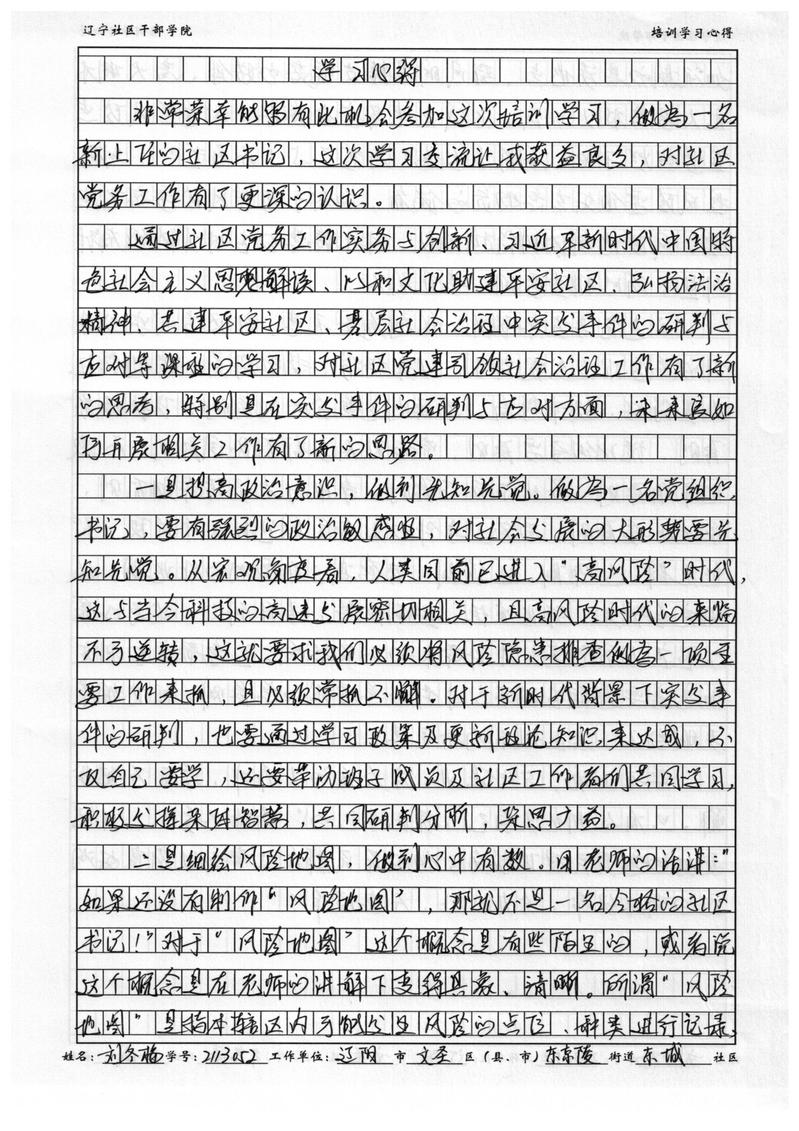 辽宁社区干部学院 培训学习心得
学习心得
非常荣幸能够有此机会参加这次培训学习，做为一名
新上任的社区书记，这次学习交流让我获益良多，对社区
党务工作有了更深的认识。
通过社区党务工作实务与创新、习近平新时代中国特
色社会主义思想解读、以和文化助建平安社区、弘扬法治
精神、共建平安社区、基层社会治理中突发事件的研判与
应对等课程的学习，对社区党建引领社会治理工作有了新
的思考，特别是在突发事件的研判与应对方面，未来应如
何开展相关工作有了新的思路。
一是提高政治意识，做到先知先觉。做为一名党组织
书记，要有强烈的政治敏感性，对社会发展的大形势要先
知先觉。从宏观角度看，人类目前已进入“高风险”时代，
这与当今科技的高速发展密切相关，且高风险时代的来临
不可逆转，这就要求我们必须将风险隐患排查例为一项重
要工作来抓，且必须常抓不懈。对于新时代背景下突发事
件的研判，也要通过学习政策及更新理论知识来达成，不
仅自己要学，还要带动班子成员及社区工作者们共同学习，
积极发挥集体智慧，共同研判分析，集思广益。
二是细绘风险地图，做到心中有数。用老师的话讲：“
如果还没有制作“风险地图”，那就不是一名合格的社区
书记！”对于“风险地图”这个概念是有些陌生的，或者说
这个概念是在老师的讲解下变得具象、清晰。所谓“风险
地图”是指本辖区内可能发生风险的点位、种类进行记录，
姓名：刘冬梅 学号：2113052 工作单位：辽阳 市 文圣 区（县、市）东京陵 街道 东城 社区